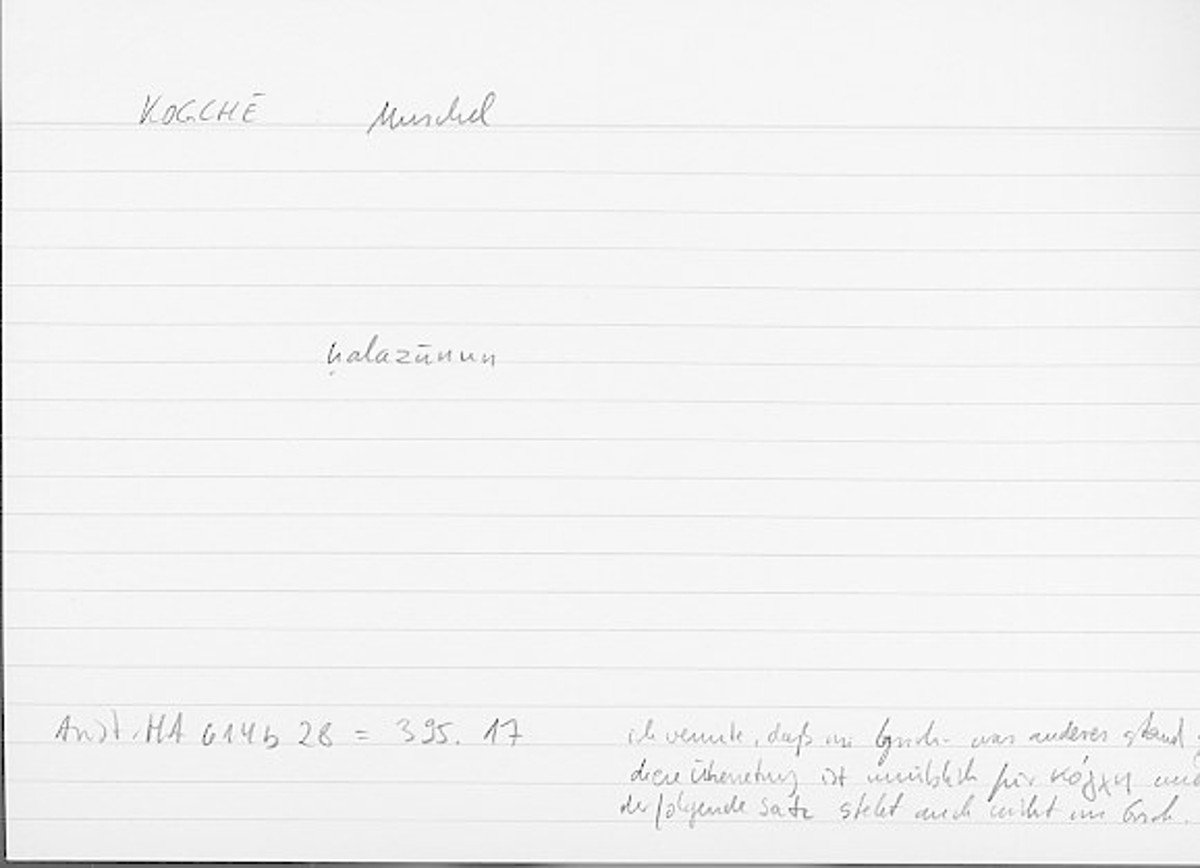 KOGCHĒ Muschel
ḥalazūnun
Arist. HA 614b 28 = 395. 17
ich vermute, daß im Griech. was anderes stand
diese Übersetzung ist unüblich für κόγχη und
der folgende Satz steht auch nicht im Griech.